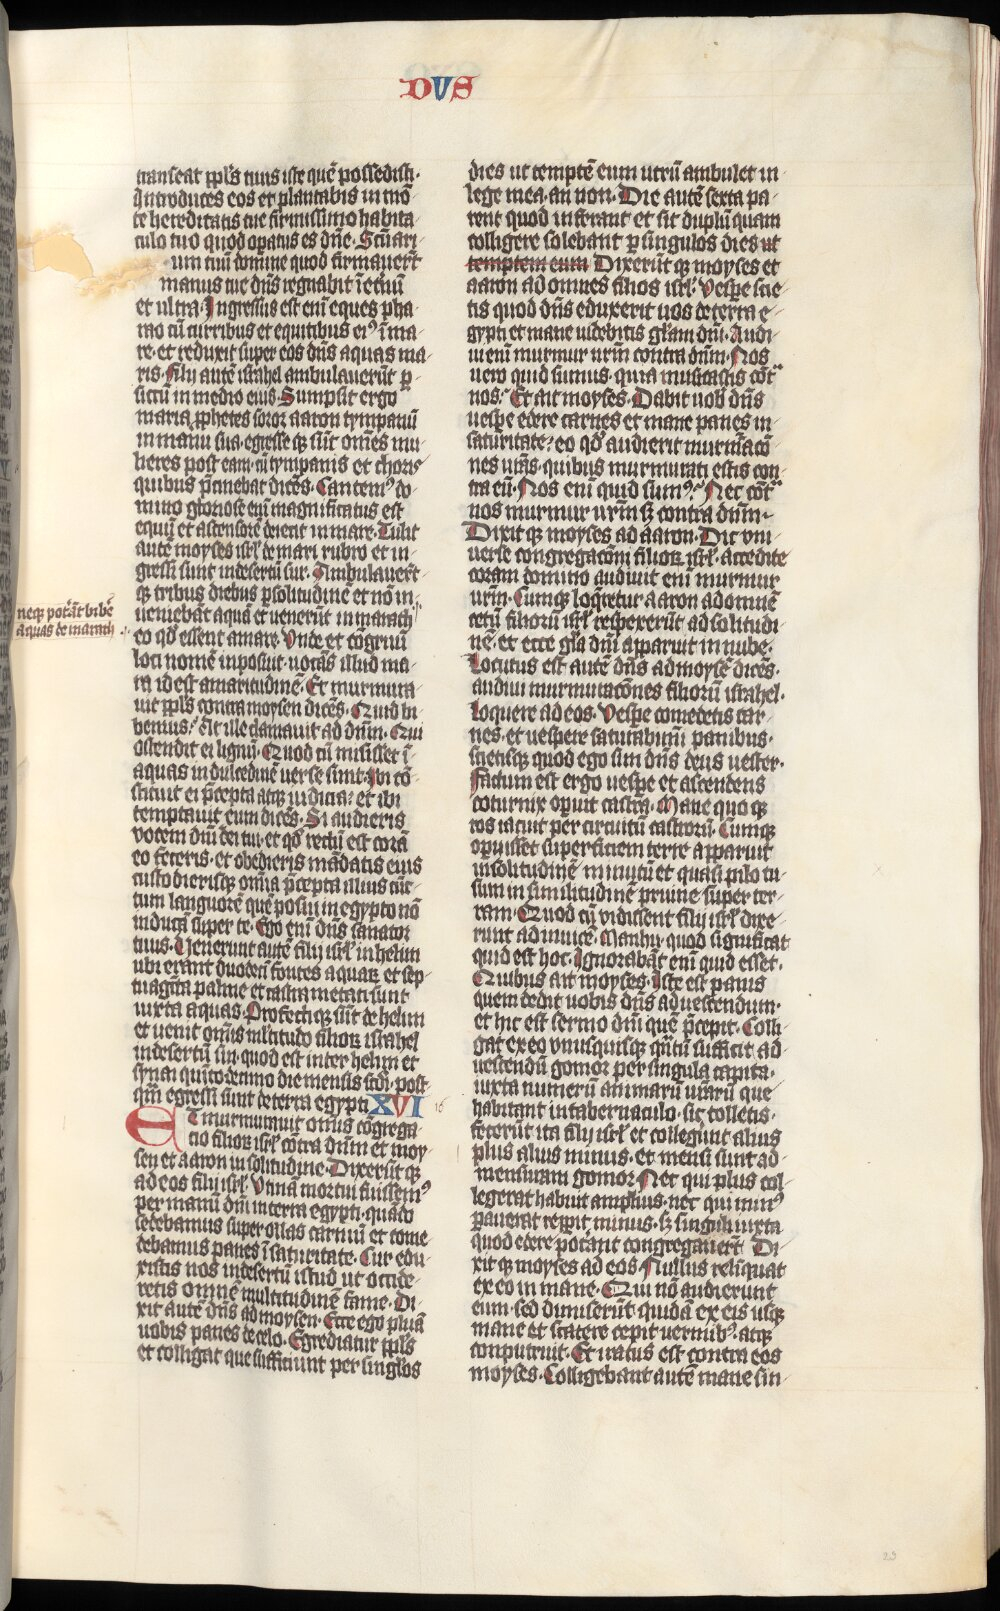 DVS
transeat ppl's tuus iste quē possedisti.
Introduces eos et plantabis in mō
te hereditatis tue firmissimo habita
culo tuo quod opatus es dn̄e. Sc̄uari
um tuū domine quod firmauer̄t
manus tue dn̄s regnabit ī et'nū
et ultra. Ingressus est enī eques pha
rao cū curribus et equitibus ei9 ī ma
re. et reduxit super eos dn̄s aquas ma
ris. Filij autē israhel ambulauer̄ūt p̄
siccū in medio eius. Sumpsit ergo
maria pphetes soror aaron tympanū
in manu sua. egresse q3 sūt om̄es mu
lieres post eam. cū tympanis et choris
quibus p̄cinebat dicēs. Cantem9 do
mino gloriose enī magnificatus est
equū et ascensorē deiecit in mare. Tulit
autē moyses isrl' de mari rubro et in
gressi sunt in desertū sur. Ambulauer̄t
q3 tribus diebus p solitudinē et nō in
ueniebāt aquā et venerūt in marach
neq3 poter̄āt bibe͛
aquas de marach
eo qd' essent amare. Vnde et cōgruū
loci nomē inposuit. uocās illud ma
ra id est amaritudinē. Et murmura
uit ppl's contra moysen dicēs. Quid bi
bemus? At ille clamauit ad dn̄m. Qui
ostendit ei lignū. Quod cū misisset ī
aquas in dulcedinē verse sunt. Ibi cō
stituit ei p̄cepta atq3 iudicia: et ibi
temptauit eum dicēs. Si audieris
vocem dn̄i dei tui. et qd' rectū est corā
eo feceris. et obedieris mādatis eius
custodierisq3 om̄ia p̄cepta illius cūc
tum languorē quē posui in egypto nō
inducā super te. Ego enī dn̄s sanator
tuus. Venerunt autē filij isrl' in helim
ubi erant duodecī fontes aquaꝝ et sep
tuagīta palme et castra metati sunt
iuxta aquas. Profectiq3 sūt de helim
et uenit om̄is mltitudo filioꝝ israhel
in desertū sin. quod est inter helim et
synai quītodecimo die mensis scd'i. post
qm̄ egressi sunt de terra egypti XVI
Et murmurauit om̄is cōgrega
tio filioꝝ isrl' cōtra dn̄m et moy
sen et aaron in solitudine. Dixerūt q3
ad eos filij isrl'. Vtinā mortui fuissem9
per manū dn̄i in terra egypti. quādo
sedebamus super ollas carniū et come
debamus panes ī saturitate. Cur edu
xistis nos in desertū istud ut occide
retis omnē multitudinē fame. Di
xit autē dn̄s ad moysen. Ecce ego pluā
uobis panes de celo. Egrediatur ppl's
et colligat que sufficiunt per singlos
dies ut temptē eum utrū ambulet in
lege mea. an non. Die autē sexta pa
rent quod inferant et sit duplū quam
colligere solebant p singulos dies ut
temptem eum Dixerūt q3 moyses et
aaron ad omnes filios isrl'. Vesp̄e scie
tis quod dn̄s eduxerit uos de terra e
gypti et mane uidebitis gl'am dn̄i. Audi
ui enī murmur urm̄ contra dn̄m. Nos
uero quid sumus. quia musitastis cōt
nos? Et ait moyses. Dabit uob' dn̄s
uesp̄e edere carnes et mane panes in
saturitate: eo qd' audierit murm̄acō
nes uras. quibus murmurati estis con
tra eū. Nos enī quid sum9? Nec cōt
nos murmur urm̄ s3 contra dn̄m.
Dixit q3 moyses ad aaron. Dic vni
uerse congregacōni filioꝝ isrl'. accedite
coram domino audiuit enī murmur
urm̄. Cumq3 loq̄retur aaron ad omnē
cetū filiorū isrl' respexerūt ad solitudi
nē. et ecce gl'a dn̄i apparuit in nube.
Locutus est autē dn̄s ad moysē dicēs.
audiui murmuracōnes filiorū israhel.
loquere ad eos. Vesp̄e comedetis car
nes. et uespere saturabimī panibus.
scietisq3 quod ego sim dn̄s deus uester.
Factum est ergo uesp̄e et ascendens
coturnix opuit castra. Mane quo q3
ros iacuit per circuitū castrorū. Cumq3
opuisset superficiem terre apparuit
in solitudinē minutū et quasi pilo tu
sum in similitudinē pruine super ter
ram. Quod cū vidissent filij isrl' dixe
runt ad inuicē. Manhu. quod significat
quid est hoc. Ignorabāt enī quid esset.
Quibus ait moyses. Iste est panis
quem dedit uobis dn̄s ad uescendum.
et hic est sermo dn̄i quē p̄cepit. Colli
gat ex eo vnusquisq3 q̄ntū sufficit ad
uescendū gomor per singula capita.
iuxta numerū animarū urarū que
habitant in tabernaculo. sic colletis.
fecerūt ita filij isrl' et collegūt alius
plus alius minus. et mensi sunt ad
mensuram gomor. Nec qui plus col
legerat habuit amplius. nec qui min9
pauerat repp̄it minus. s3 singuli iuxta
quod edere poterant congregauer̄t Di
xit q3 moyses ad eos. Nullus relinquat
ex eo in mane. Qui nō audierunt
eum. sed dimiserūt quidā ex eis usq3
mane et scatere cepit vermib9. atq3
conputruit. Et iratus est contra eos
moyses. Colligebant autē mane sin
16
29